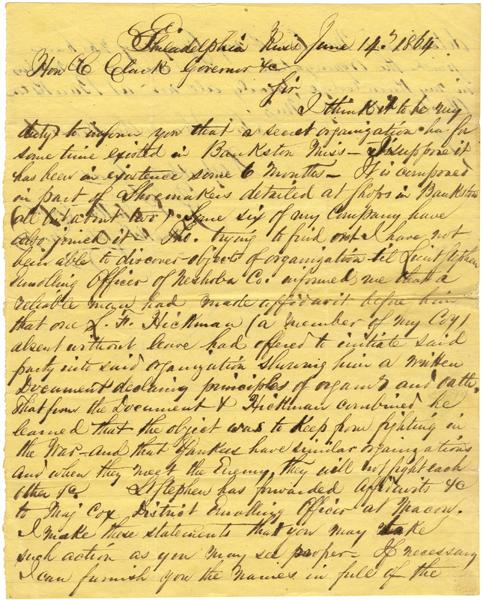 Philadelphia Miss June 14th 1864
Hon C Clark Governor &c
Sir
I think it to be my
duty to inform you that a secret organization has for
some time existed in Bankston Miss – I suppose it
has been in existence some 6 Months – It is composed
in part of Shoemakers detailed at Shops in Bankston
all but about two. Some six of my Company have
also joined it – Tho. trying to find out I have not
been able to discover objects of organization til Lieut Stephen
Enrolling Officer of Neshoba Co. informed me that a
reliable man had made affidavit before him
that one L. F. Hickman (a member of my Coy)
absent without leave had offered to initiate said
party into said organization showing him a written
Document declaring principles of organn and oath.
That from the Document & Hickman combined he
learned that the object was to keep from fighting in
the War – and that Yankees have similar organizations
and when they meet the Enemy, they will not fight each
other &c Lt Stephen has forwarded Affidavits &c
to Maj Cox District Enrolling Officer at Macon.
I make these statements that you may take
such action as you may see proper – If necessary
I can furnish you the names in full of the